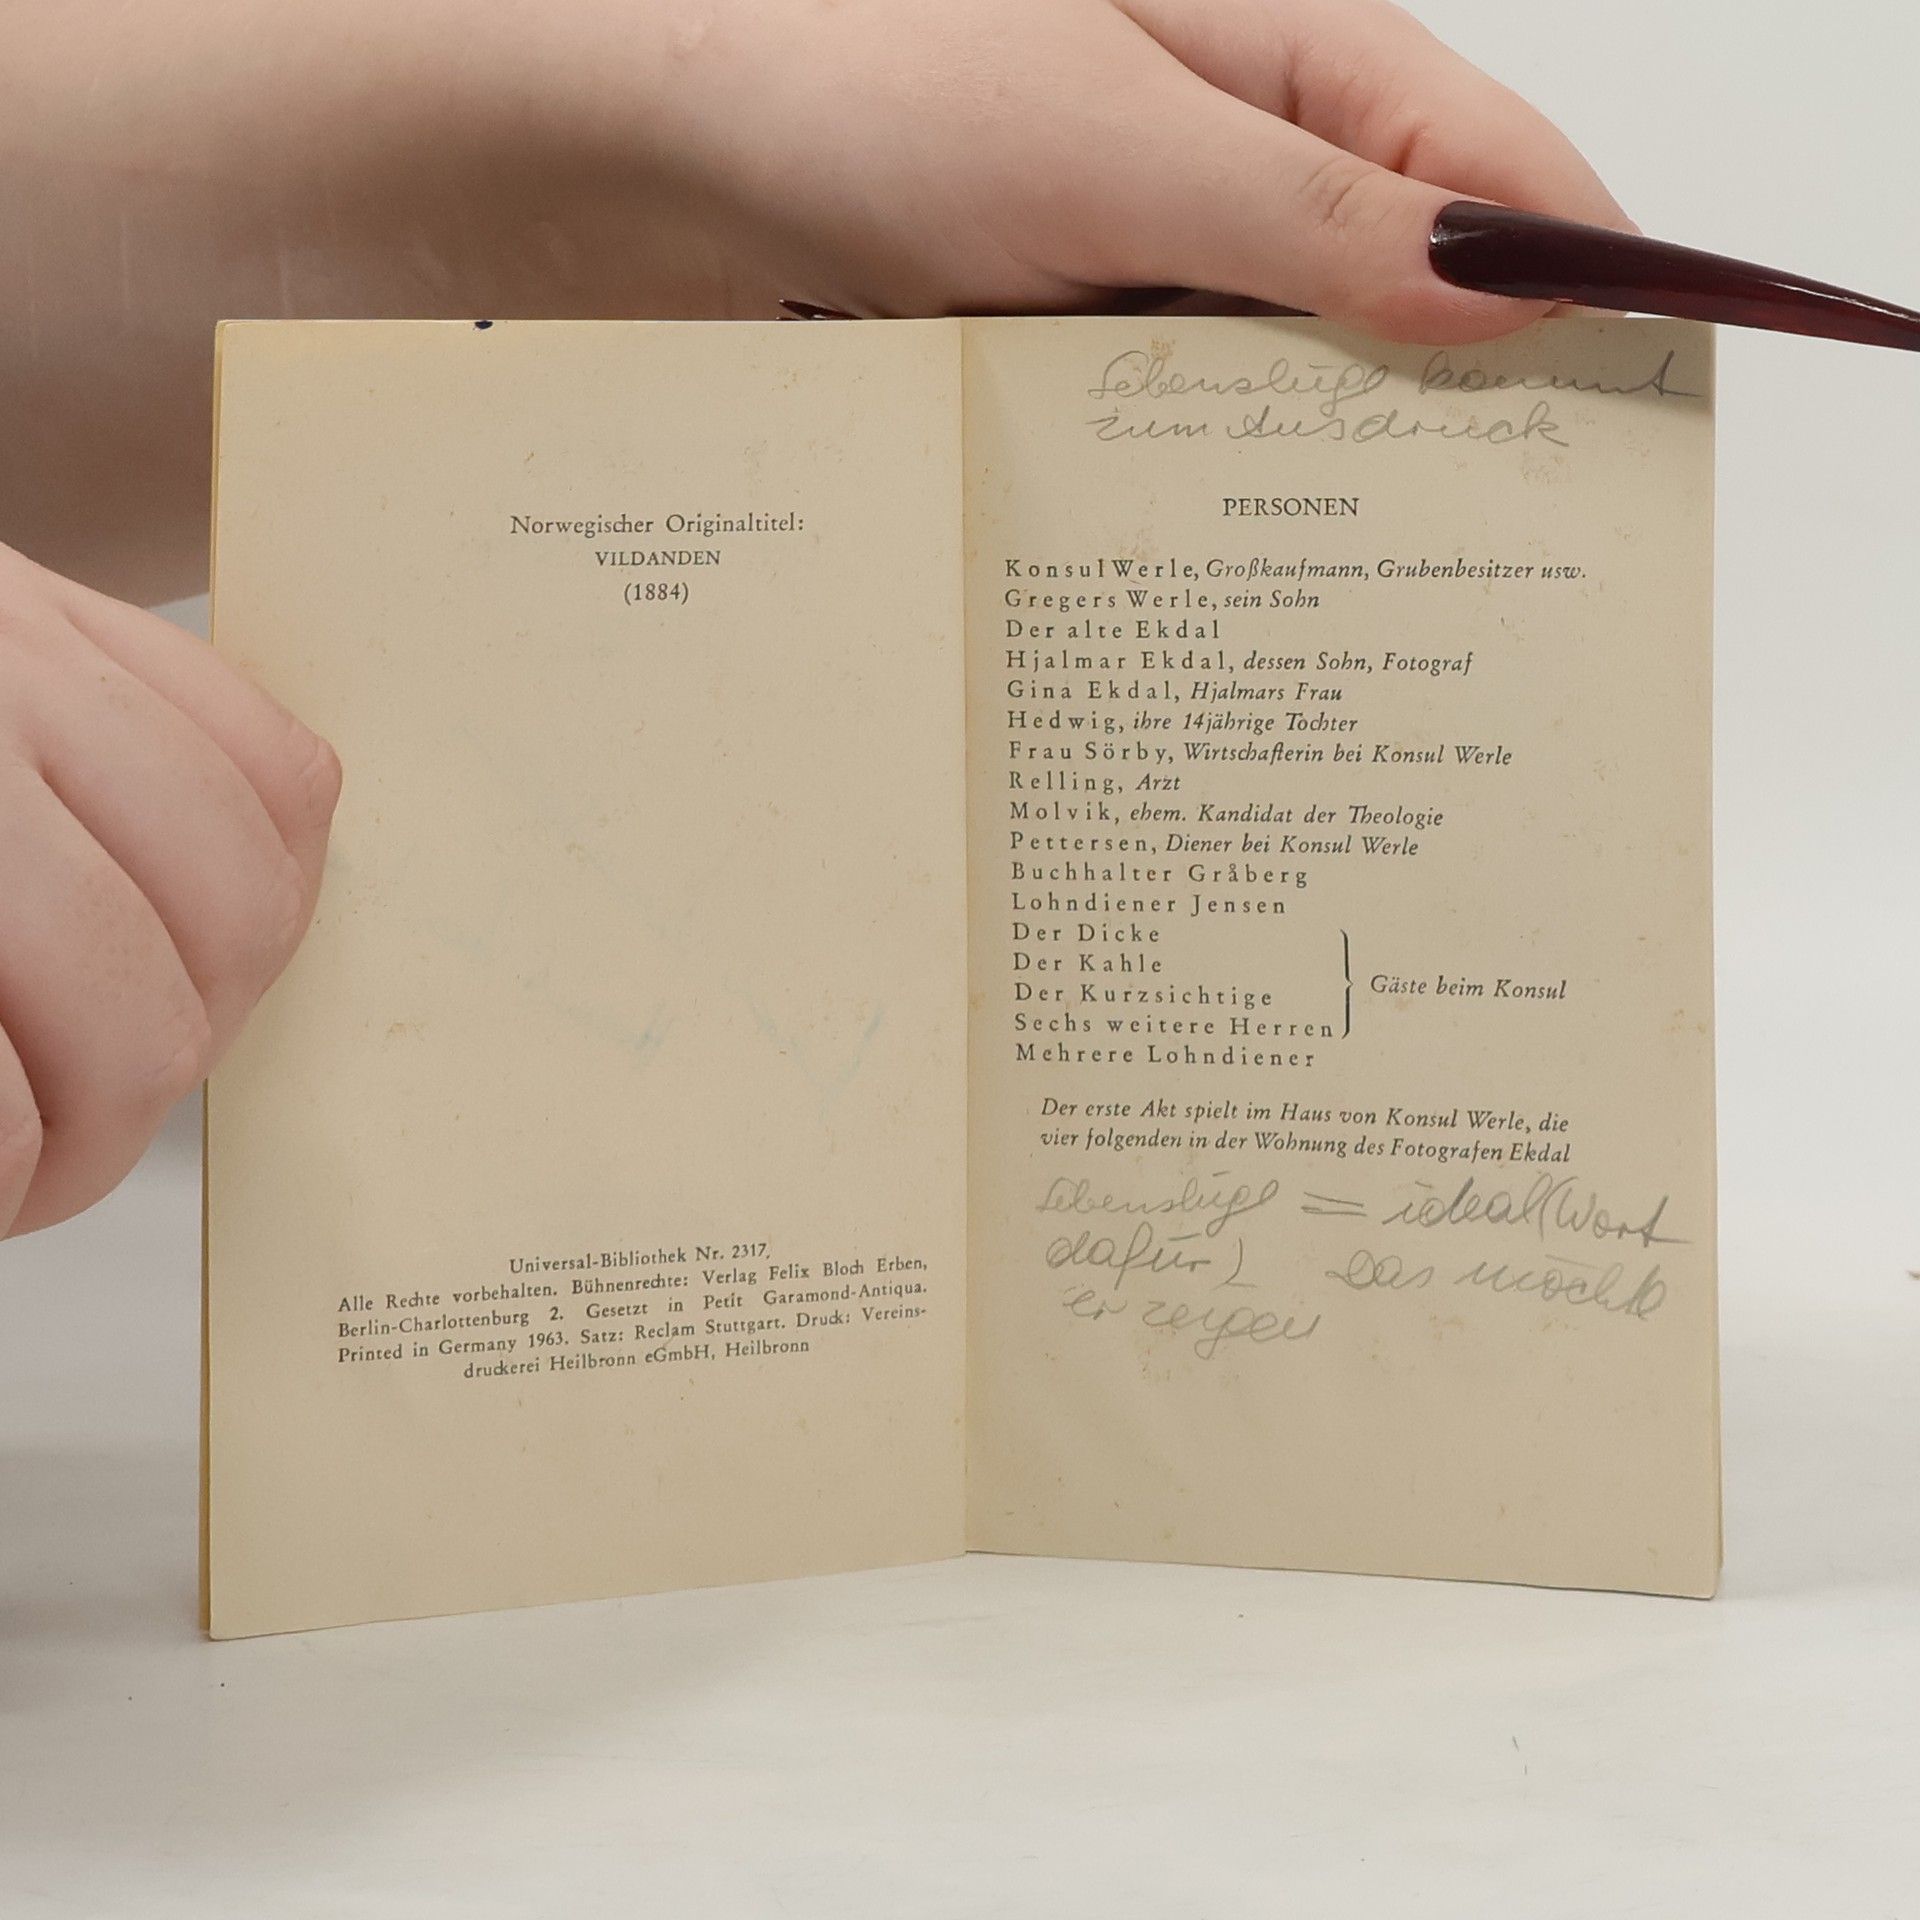 Norwegischer Originaltitel:
VILDANDEN
(1884)
Universal-Bibliothek Nr. 2317.
Alle Rechte vorbehalten. Bühnenrechte: Verlag Felix Bloch Erben,
Berlin-Charlottenburg 2. Gesetzt in Petit Garamond-Antiqua.
Printed in Germany 1963. Satz: Reclam Stuttgart. Druck: Vereins-
druckerei Heilbronn eGmbH, Heilbronn
Lebenslüge kommt
zum Ausdruck
PERSONEN
Konsul Werle, Großkaufmann, Grubenbesitzer usw.
Gregers Werle, sein Sohn
Der alte Ekdal
Hjalmar Ekdal, dessen Sohn, Fotograf
Gina Ekdal, Hjalmars Frau
Hedwig, ihre 14jährige Tochter
Frau Sörby, Wirtschafterin bei Konsul Werle
Relling, Arzt
Molvik, ehem. Kandidat der Theologie
Pettersen, Diener bei Konsul Werle
Buchhalter Gråberg
Lohndiener Jensen
Der Dicke
Der Kahle
Der Kurzsichtige
Sechs weitere Herren
Gäste beim Konsul
Mehrere Lohndiener
Der erste Akt spielt im Haus von Konsul Werle, die
vier folgenden in der Wohnung des Fotografen Ekdal
Lebenslüge = ideal (Wort
dafür) Das möchte
er zeigen